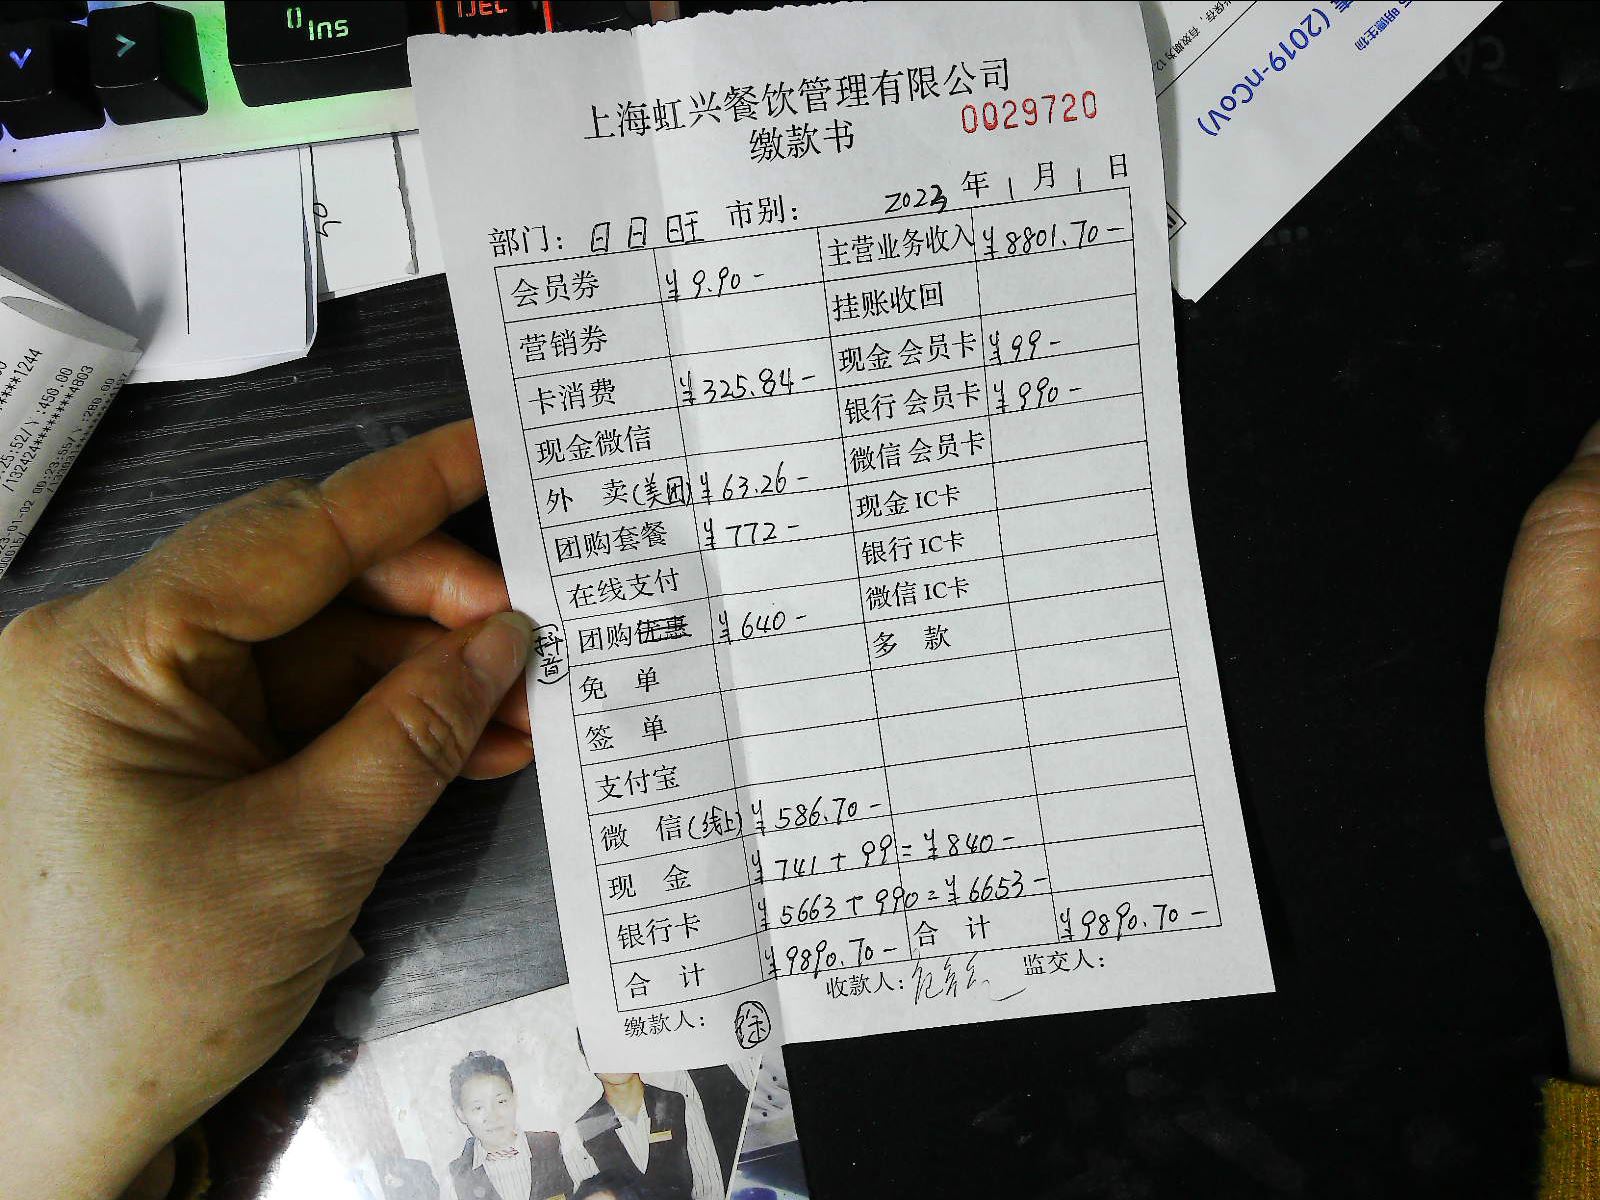 Ins
上海虹兴餐饮管理有限公司
缴款书
0029720
2023年1月1日
部门：日日旺 市别：
会员券 ¥9.90- 主营业务收入 ¥8801.70-
营销券 挂账收回
卡消费 ¥325.84- 现金 会员卡 ¥99-
现金微信 银行 会员卡 ¥990-
外 卖(美团) ¥63.26- 微信 会员卡
团购套餐 ¥772- 现金 IC卡
在线支付 银行 IC卡
(抖音) 团购优惠 ¥640- 微信 IC卡
免 单 多 款
签 单
支付宝
微 信(线上) ¥586.70-
现 金 ¥741+99=¥840-
银行卡 ¥5663+990=¥6653-
合 计 ¥9890.70- 合 计 ¥9890.70-
缴款人：徐 收款人： 监交人：
(2019-nCoV)
明德生物